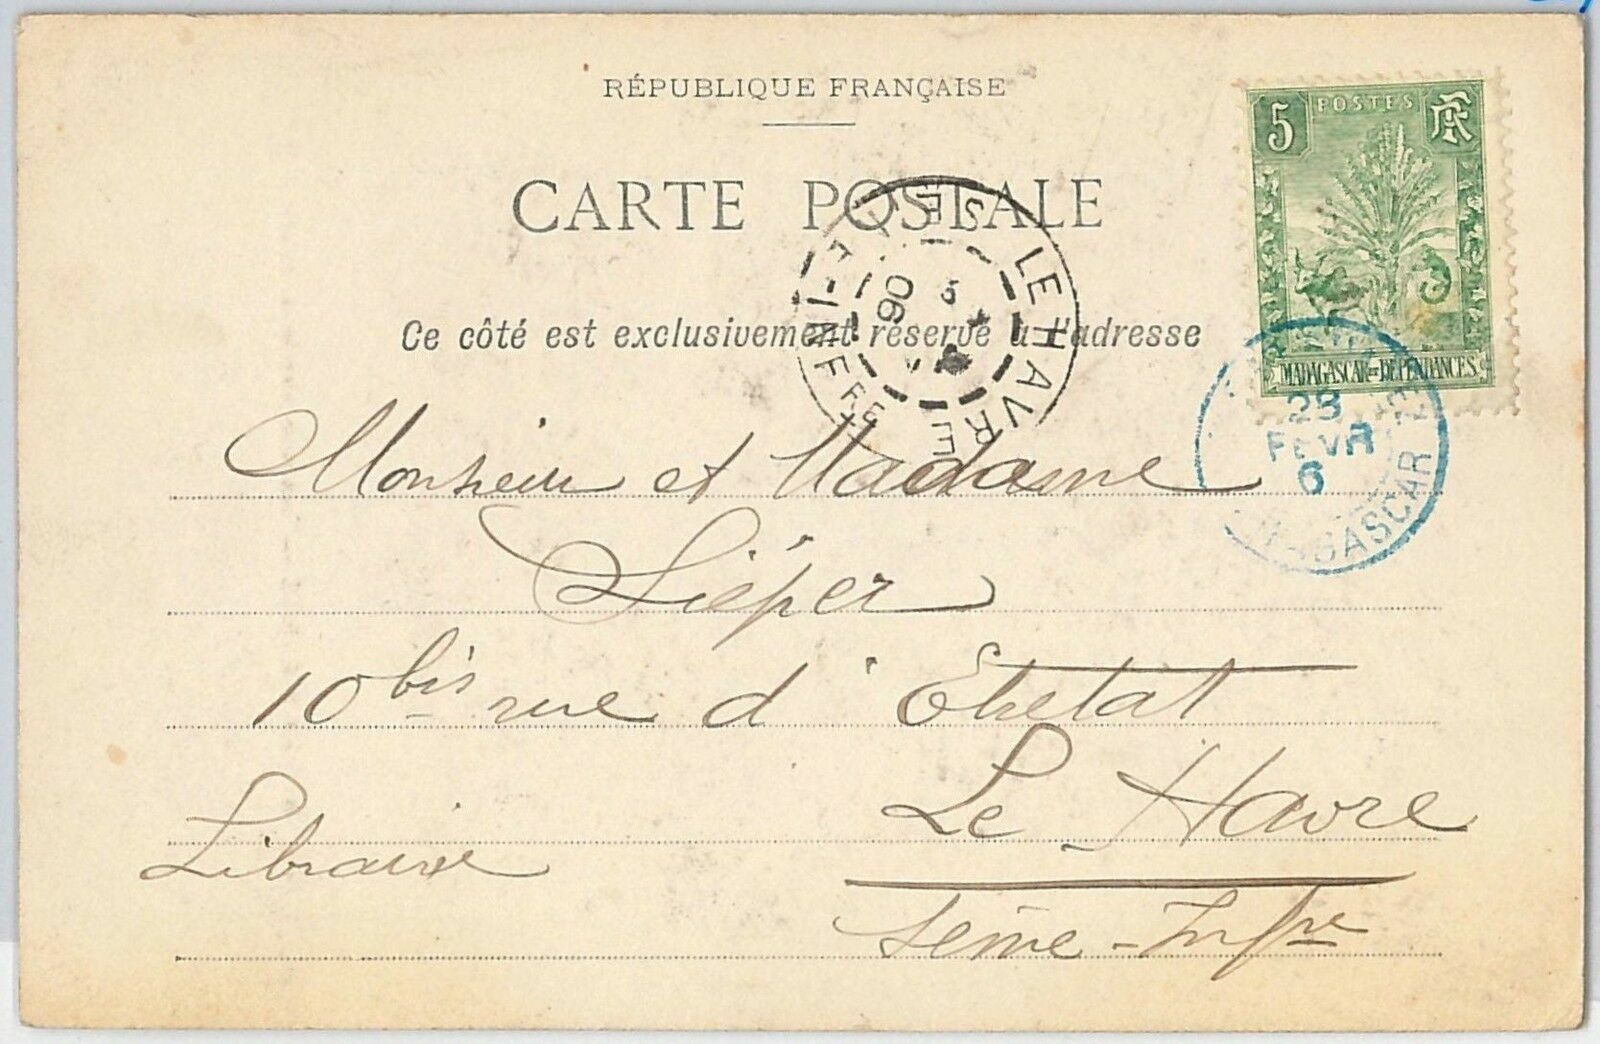 RÉPUBLIQUE FRANÇAISE
5 POSTES RF
CARTE POSTALE
LE HAVRE
INFRE
06
Ce côté est exclusivement réservé à l'adresse
MADAGASCAR et DÉPENDANCES
28
FEVR
6
MADAGASCAR
Monsieur et Madame
Liéper
10 bis rue d'Etretat
Le Havre
Libraire
Seine-Infre